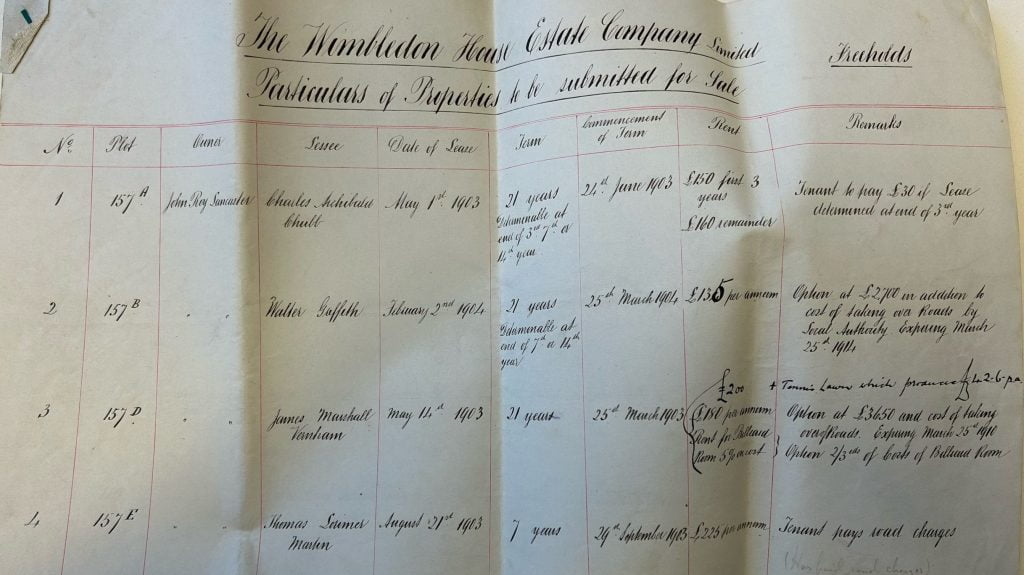 The Wimbledon House Estate Company Limited
Freeholds
Particulars of Properties to be submitted for Sale
No. Plot Owner Lessee Date of Lease Term Commencement of Term Rent Remarks
1 157A John Roy Lancaster Charles Archibald Chubb May 1st. 1903 21 years Determinable at end of 3rd 7th or 14th year. 24th June 1903 £150 first 3 years £160 remainder Tenant to pay £30 if Lease determined at end of 3rd year
2 157B " " Walter February 2nd 1904 21 years Determinable at end of 7th or 14th year 25th March 1904 £135 per annum Option at £2,700 in addition to cost of taking over Roads by Local Authority. Expiring March 25th. 1914
£200 + Tennis Lawn which produces £4-2-6 p.a.
3 157D " " James Marshall Vernham May 14th 1903 21 years 25th March 1903 £180 per annum Rent for Billiard Room 5% on cost Option at £3650 and cost of taking over of Roads. Expiring March 25th 1910 Option 2/3rds of Costs of Billiard Room
4 157E " " Thomas Lorimer Martin August 21st 1903 7 years 29th September 1903 £225 per annum Tenant pays road charges
(Has paid road charges)